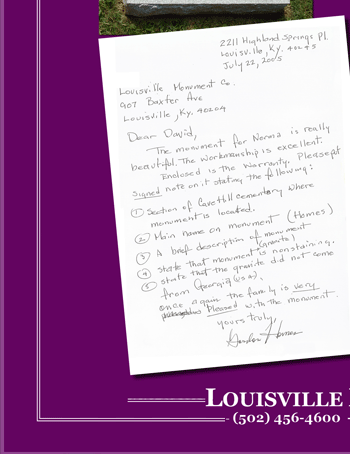 2211 Highland Springs Pl.
Louisville, Ky. 40245
July 22, 2005
Louisville Monument Co.
907 Baxter Ave
Louisville, Ky. 40204
Dear David,
The monument for Norma is really
beautiful. The workmanship is excellent.
Enclosed is the warranty. Please put
signed note on it stating the following:
① Section of Cave Hill cementery where
monument is located.
② Main name on monument (Homes)
③ A brief description of monument
(granite)
④ state that monument is nonstaining.
⑤ state that the granite did not come
from Georgia (USA).
once again the family is very
pleased with the monument.
yours truly,
LOUISVILLE
(502) 456-4600